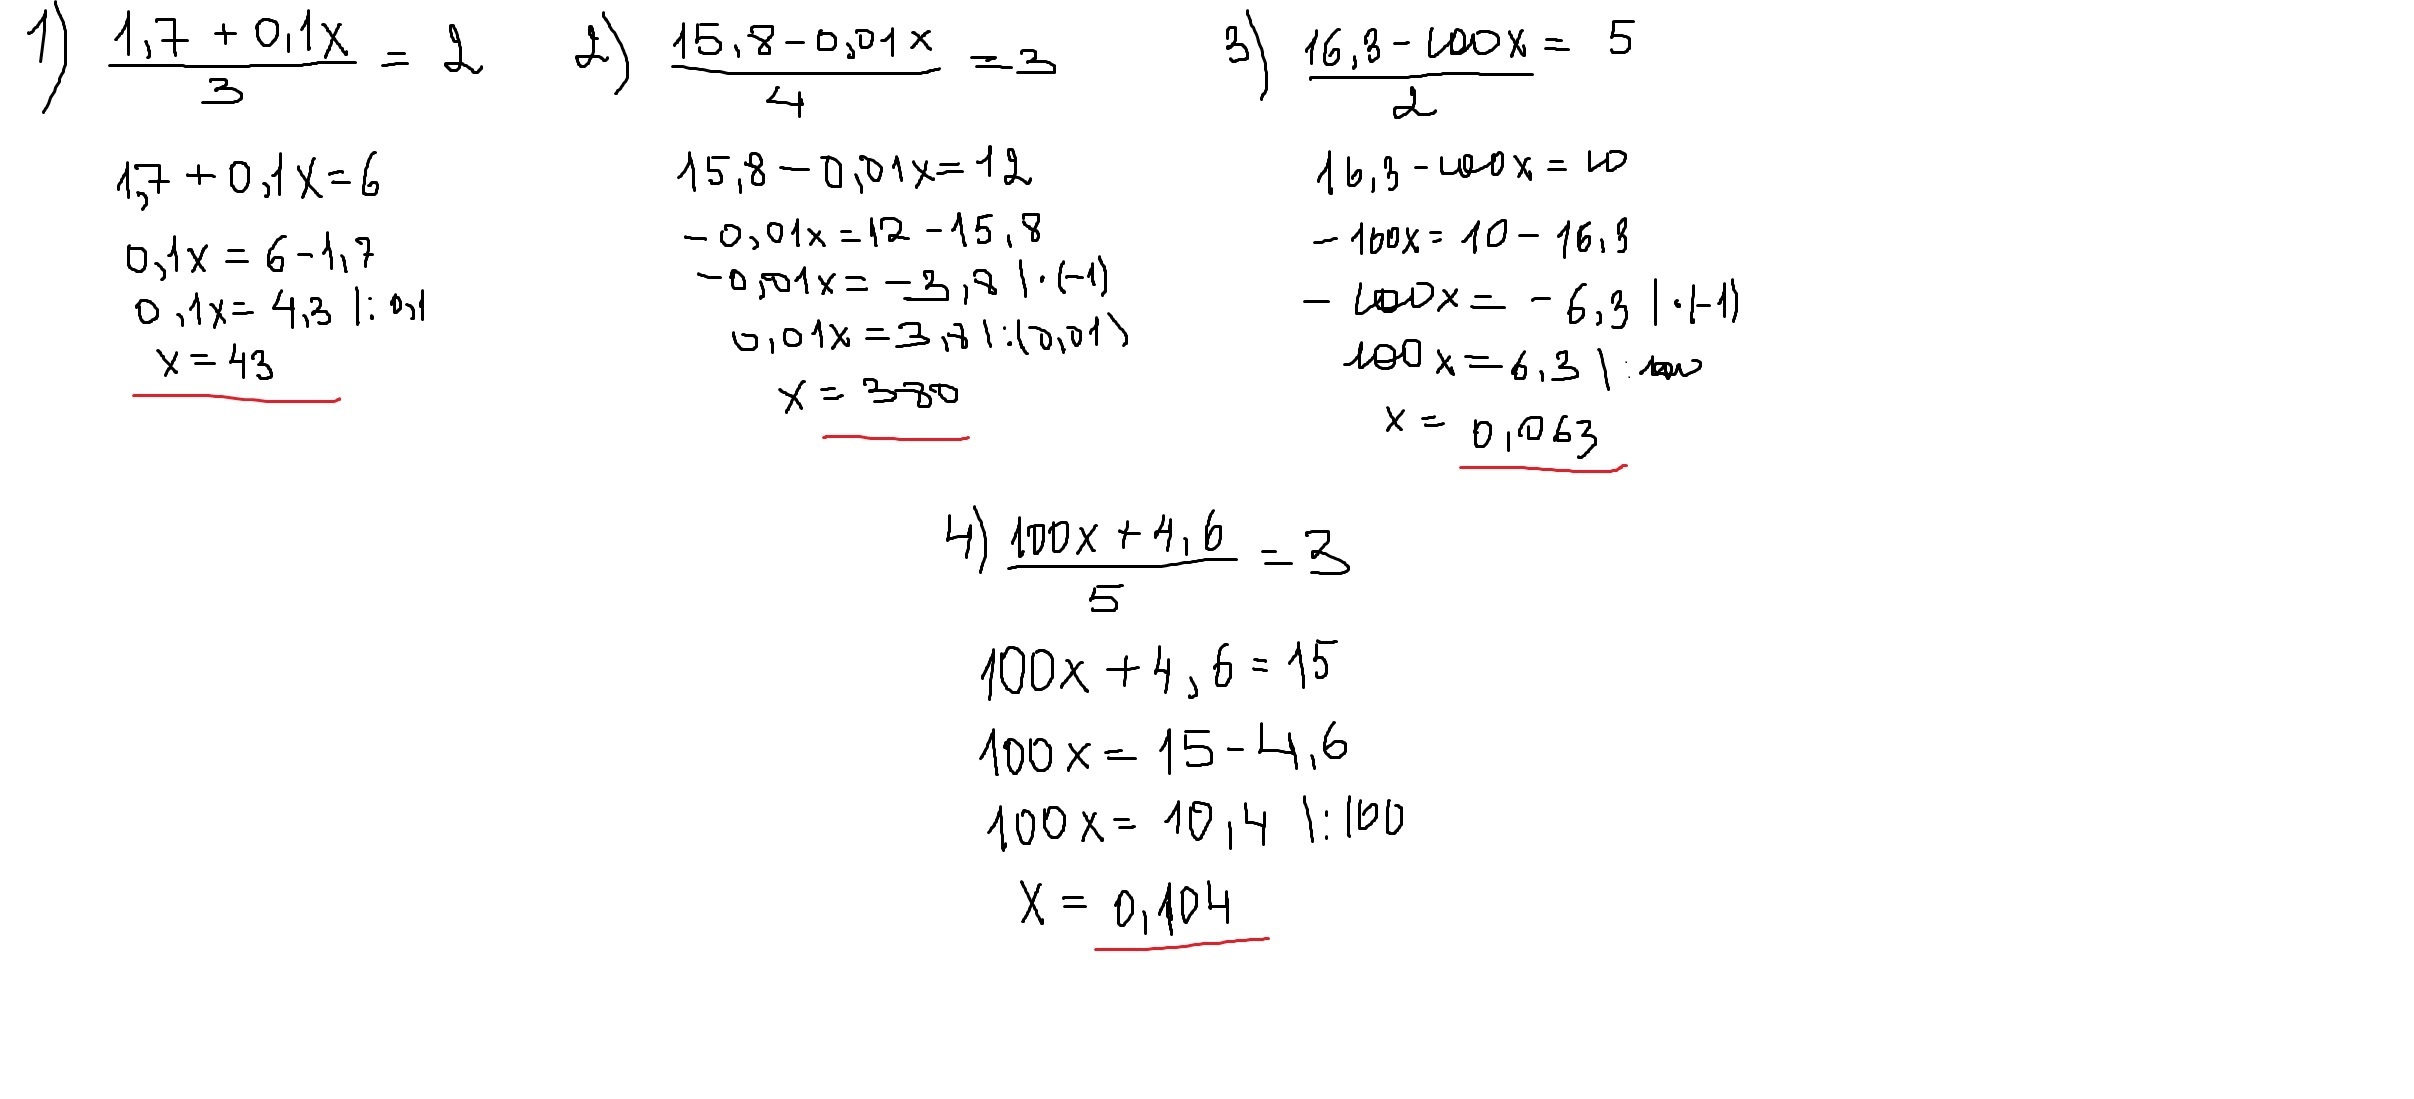 1) (1,7 + 0,1x)/3 = 2
1,7 + 0,1x = 6
0,1x = 6 - 1,7
0,1x = 4,3 |: 0,1
x = 43
2) (15,8 - 0,01x)/4 = 3
15,8 - 0,01x = 12
- 0,01x = 12 - 15,8
- 0,01x = - 3,8 | · (-1)
0,01x = 3,8 | : (0,01)
x = 380
3) (16,3 - 100x)/2 = 5
16,3 - 100x = 10
- 100x = 10 - 16,3
- 100x = - 6,3 | · (-1)
100x = 6,3 | : 100
x = 0,063
4) (100x + 4,6)/5 = 3
100x + 4,6 = 15
100x = 15 - 4,6
100x = 10,4 | : 100
x = 0,104